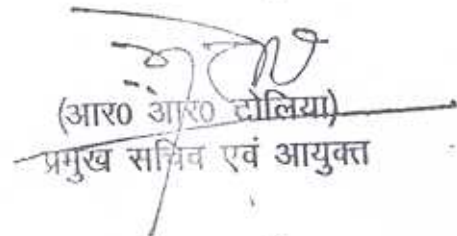 (आर0 आर0 टोलिया)
प्रमुख सचिव एवं आयुक्त